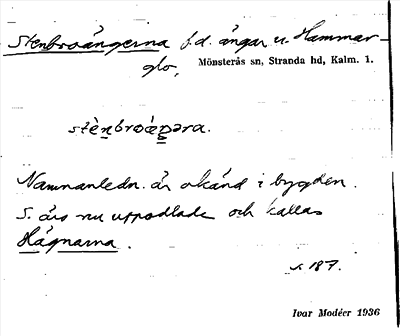 Stenbroängerna f.d. ängar u. Hammar-
glo, Mönsterås sn, Stranda hd, Kalm. l.
Namnanledn. är okänd i bygden.
S. äro nu uppodlade och kallas
Hägnarna.
s. 187.
Ivar Modéer 1936